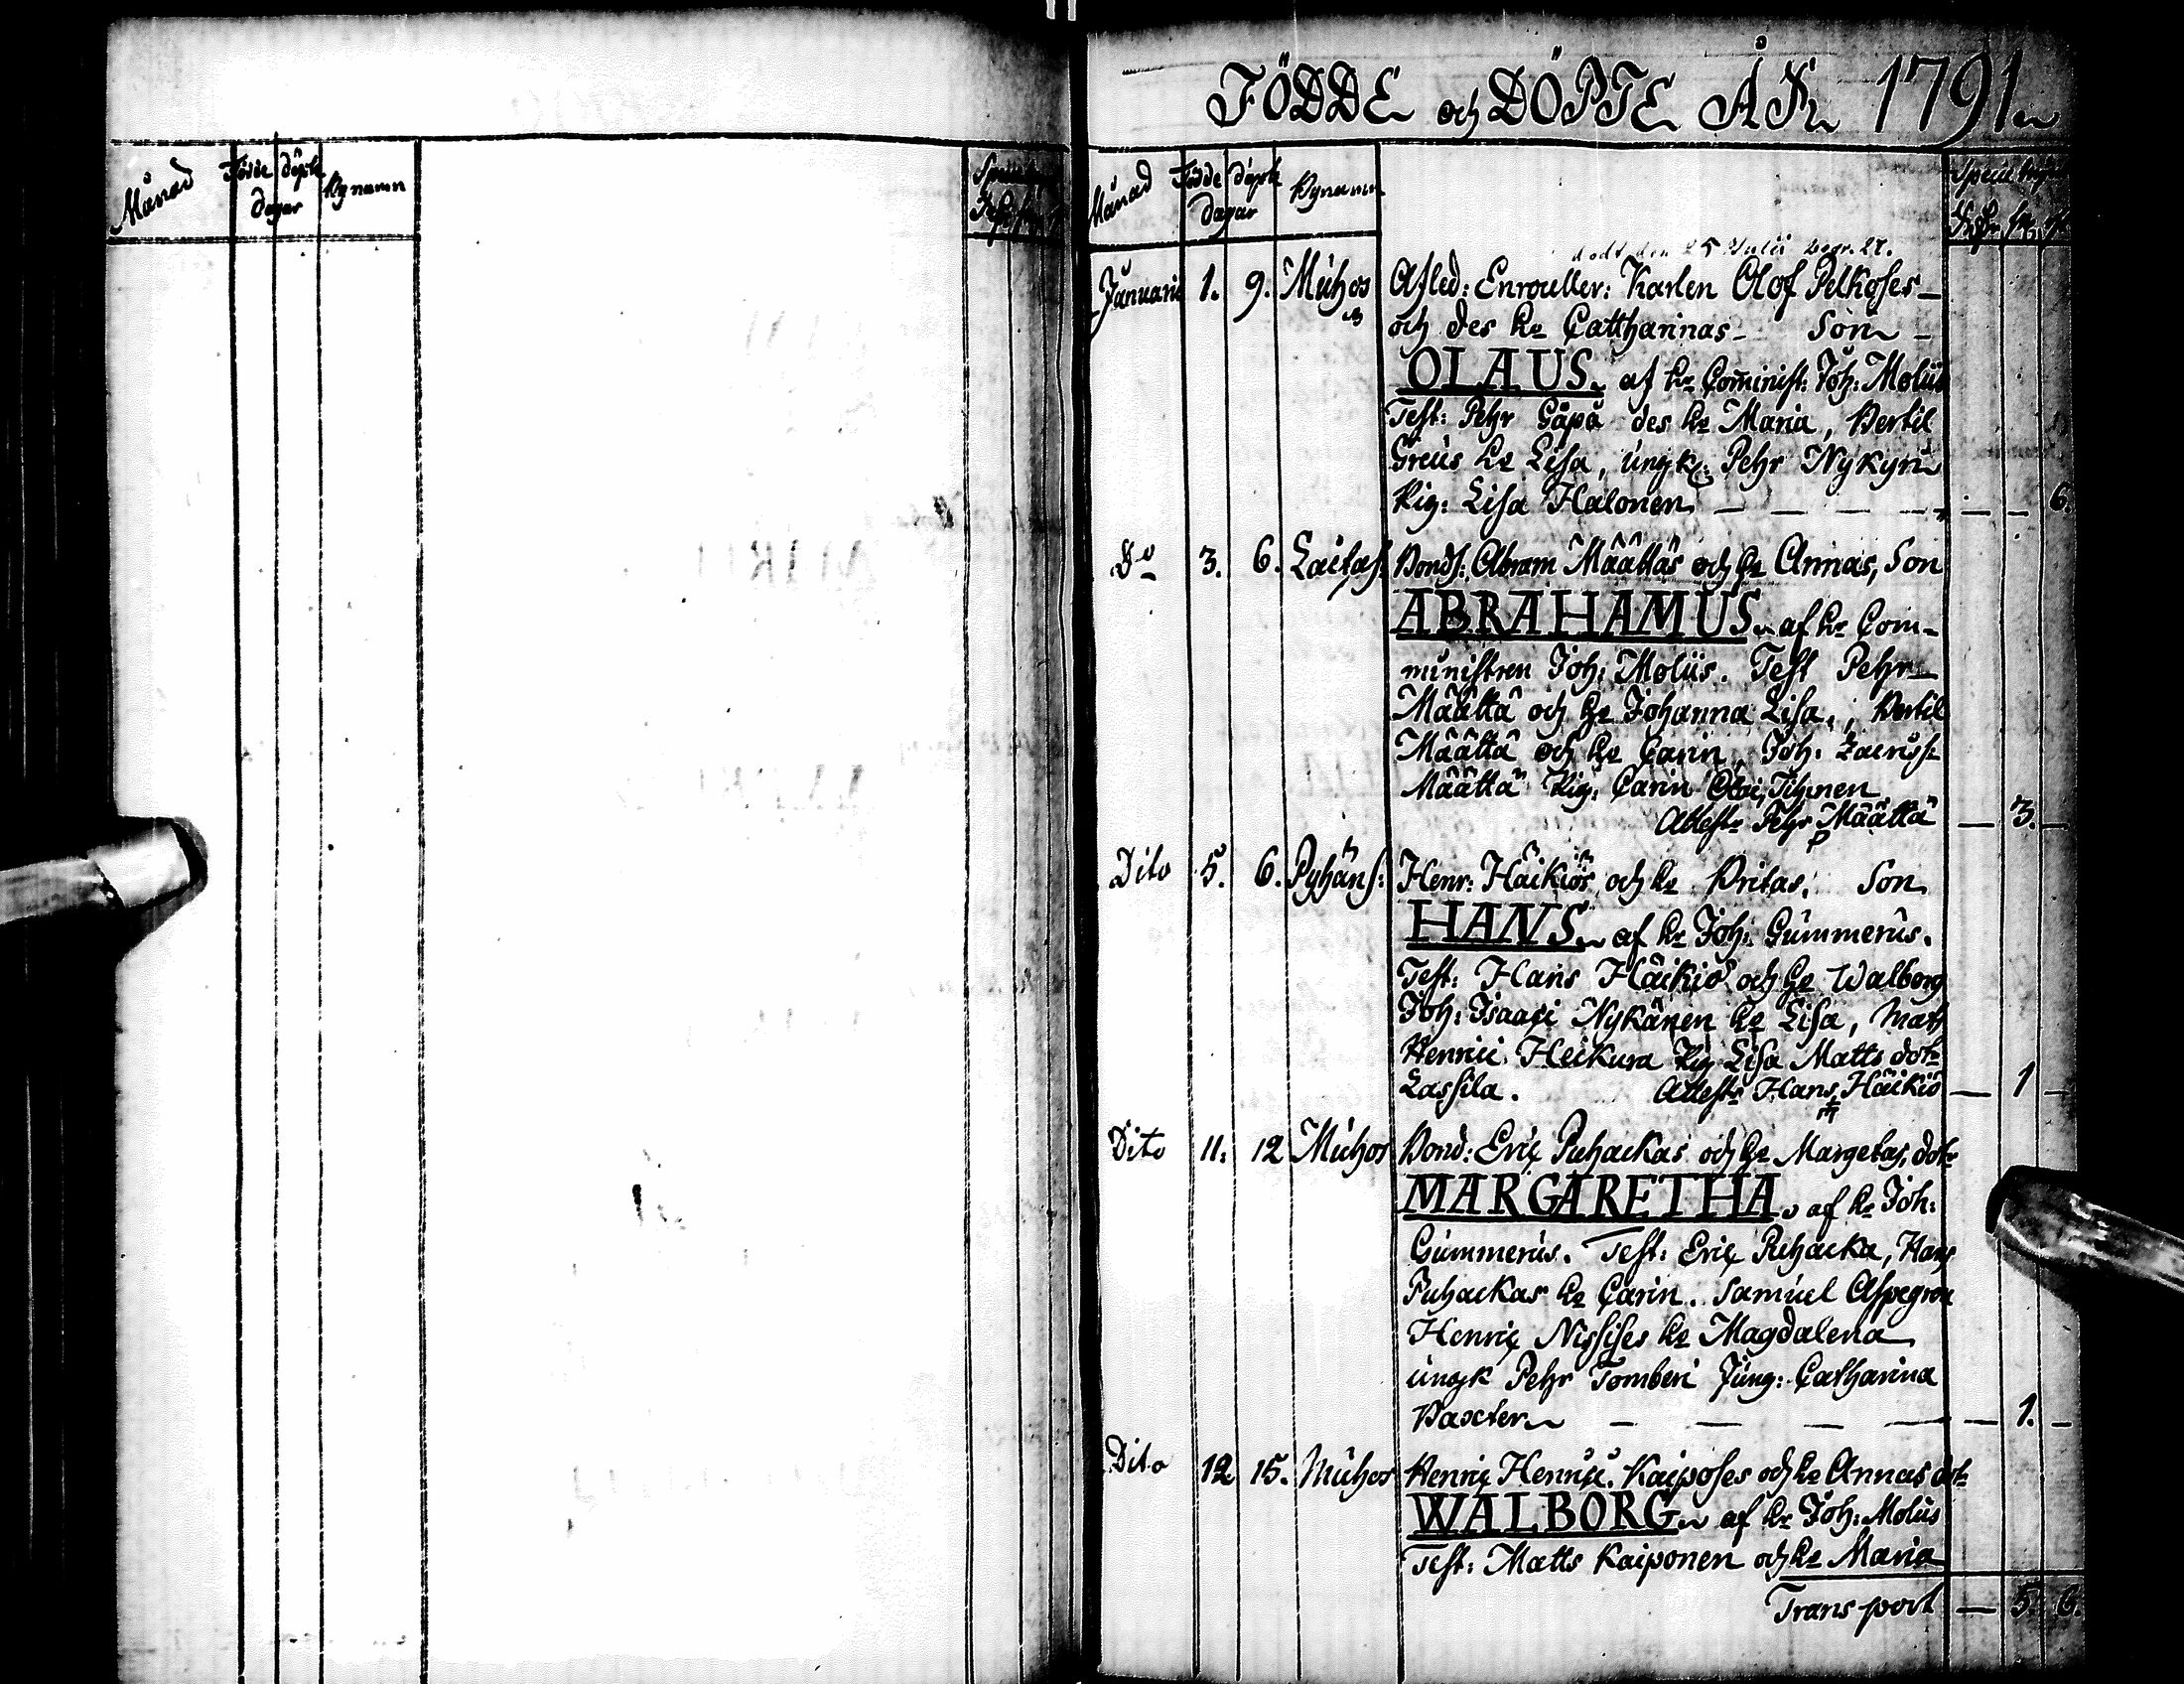 Månad Födde döpte Bynamn
dagar
FÖDDE och DÖPTE ÅR 1791
Månad Födde döpte Bynamn
dagar
död den 25 Julii begr. 27.
Januarii 1. 9. Muhos Afled: Enrouller: Karlen Olof Pelkoses
och des hu Cattharinas Son
OLAUS af hr Com̄inist: Joh: Molüs
Test: Pehr Gåpå des hu Maria, Bertil
Greüs hu Lisa, ungk: Pehr Nykyri
Pig: Lisa Halonen 6.
Do 3. 6. Laitas: Bonds: Abram Määttäs och hu Annas, Son
ABRAHAMUS af hr Com-
ministren Joh: Molüs. Test Pehr
Määttä och hu Johanna Lisa, Bertil
Määttä och hu Carin, Joh:
Määttä Pig: Carin Tihinen
Attest Pehr Määttä 3.
P
Dito 5. 6. Pyhäns: Henr: Häikiös och hu Britas, Son
HANS af hr Joh: Gummerus.
Test: Hans Häikiö och hu Walborg
Joh: Isaaci Nykänen hu Lisa, Math
Henrici Heikura Pig Lisa Matts dotr
Lassila. Attestr Hans Häikiö 1
Dito 11. 12 Muhos Bond: Eric Puhackas och hu Margetas, dotr
MARGARETHA af hr Joh:
Gummerus. Test: Eric Puhacka, Hans
Puhackas hu Carin. Samuel Aspegren
Henric Nissises hu Magdalena
ungk Pehr Tomberi Jung: Catharina
Baxter 1.
Dito 12 15. Muhos Henric Henrici Kaiposes och hu Annas dotr
WALBORG af hr Joh: Molüs
Test: Matts Kaiponen och hu Maria
Transport 5. 6.